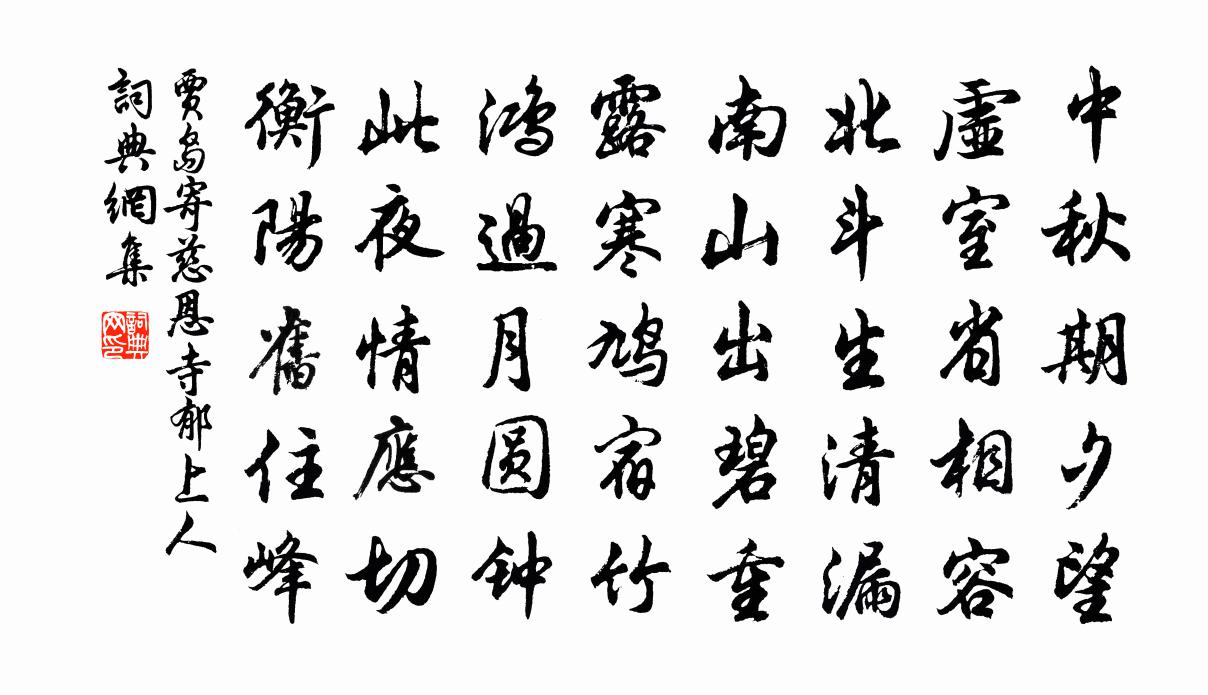 中秋期夕望
虛室省相容
北斗生清漏
南山出碧重
露寒鳩宿竹
鸿過月圆钟
此夜情應切
衡陽舊住峰
賈島寄慈恩寺郁上人
詞典網集
詞典网印